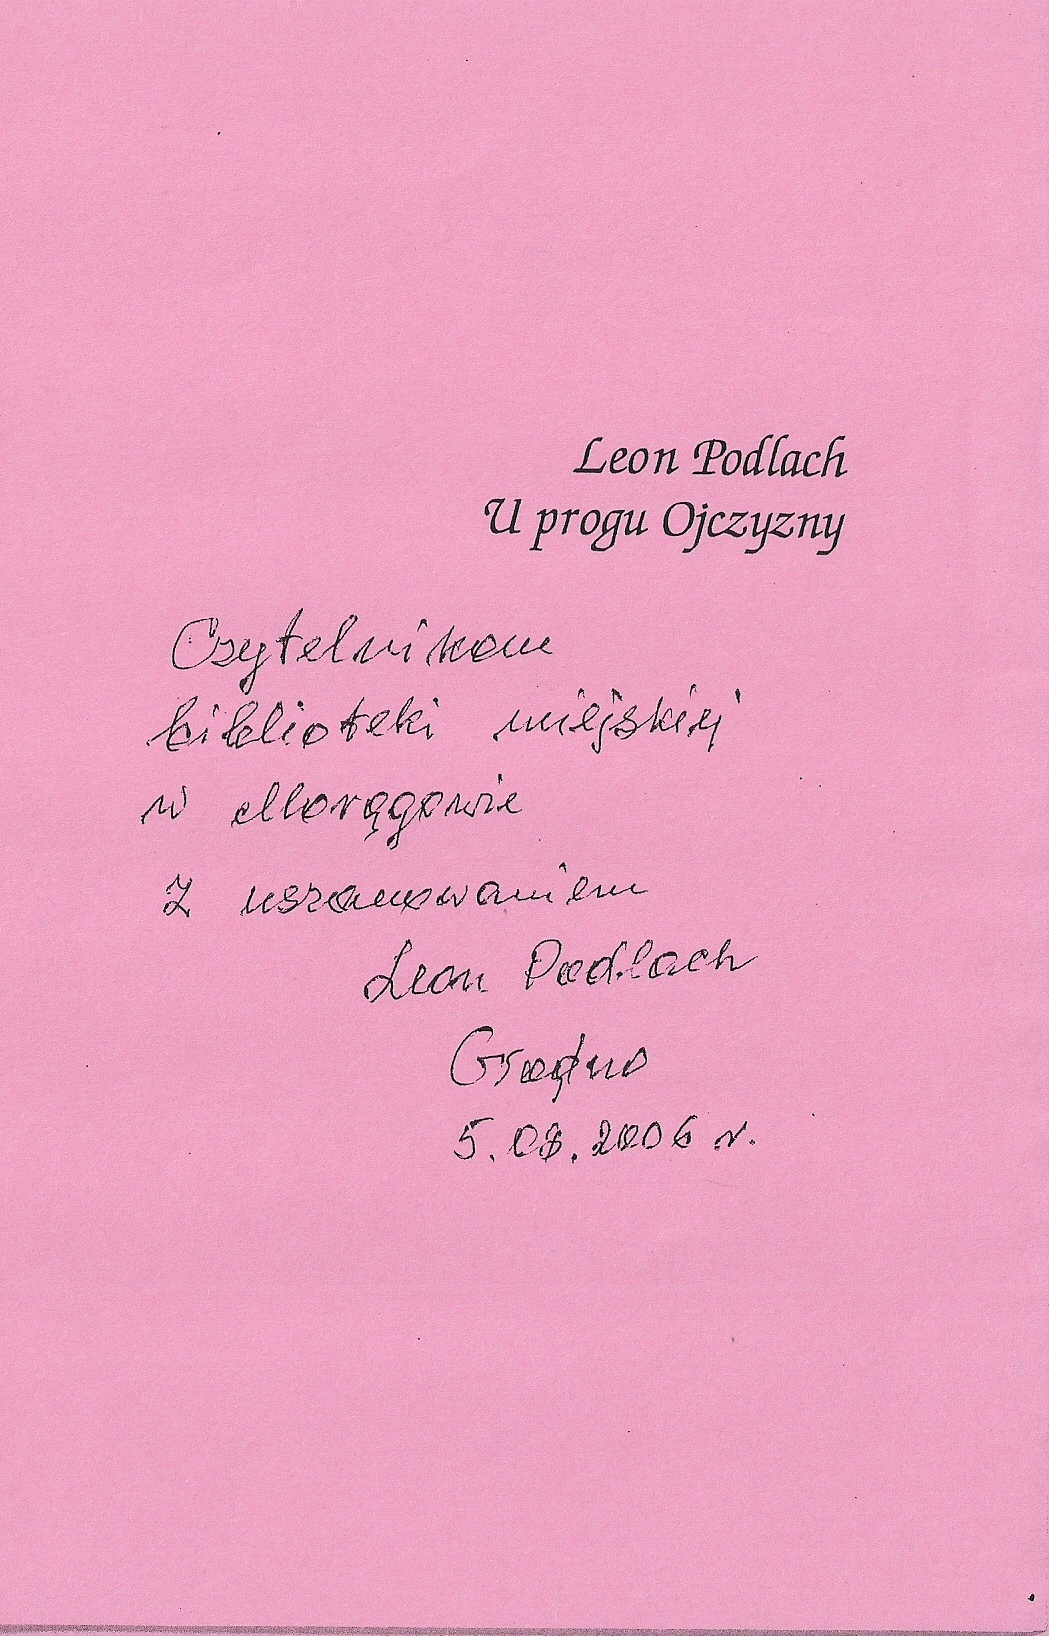 Leon Podlach
U progu Ojczyzny
Czytelnikom
biblioteki miejskiej
w Morągowie
z uszanowaniem
Leon Podlach
Grodno
5.08.2006 r.